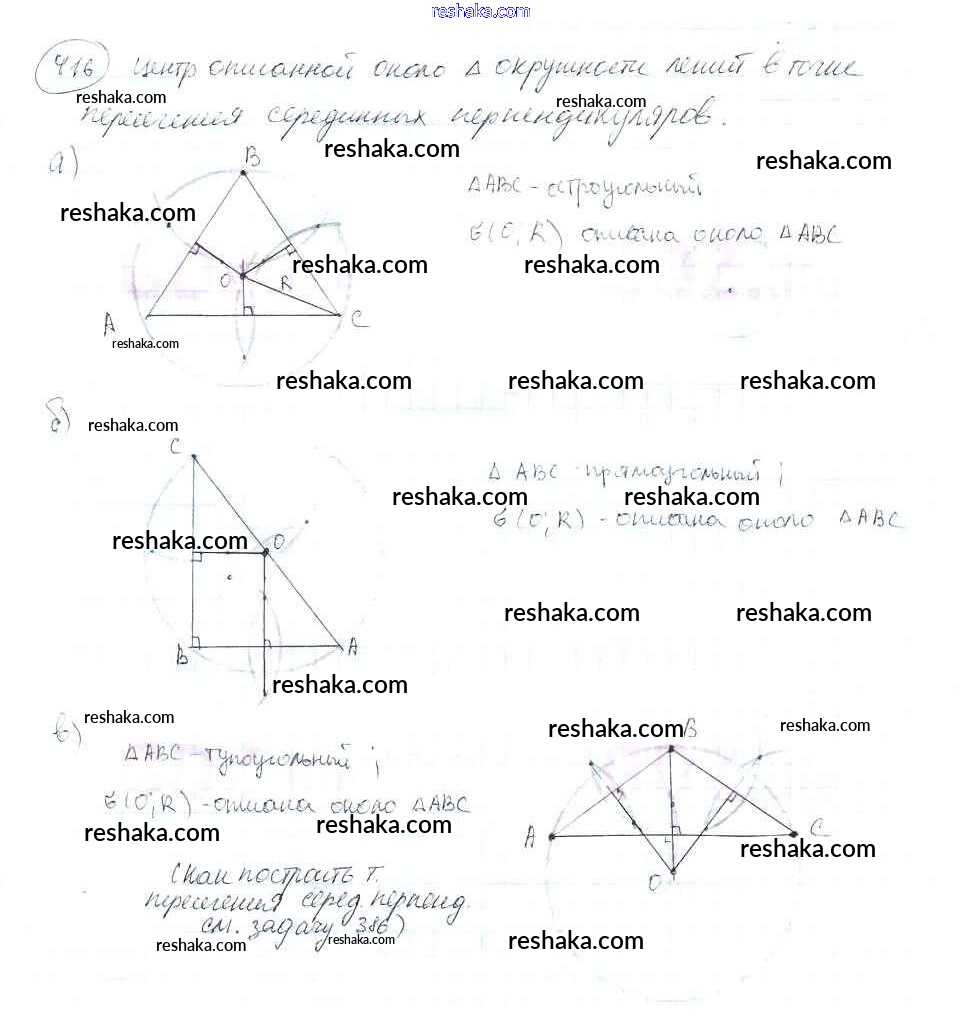 reshaka.com
416 Центр описанной около Δ окружности лежит в точке
reshaka.com
пересечения серединных перпендикуляров.
reshaka.com
reshaka.com
reshaka.com
а)
B
ΔABC - остроугольный
reshaka.com
б(O; R) описана около ΔABC
reshaka.com
reshaka.com
O
R
A
C
reshaka.com
reshaka.com
reshaka.com
reshaka.com
б)
reshaka.com
C
Δ ABC - прямоугольный;
reshaka.com
reshaka.com
б(O; R) - описана около ΔABC
reshaka.com
O
reshaka.com
reshaka.com
B
A
reshaka.com
в)
reshaka.com
reshaka.com
B
reshaka.com
ΔABC - тупоугольный;
б(O; R) - описана около ΔABC
reshaka.com
reshaka.com
A
C
reshaka.com
O
(Как построить т.
пересечения серед. перпенд.
см. задачу 386)
reshaka.com
reshaka.com
reshaka.com